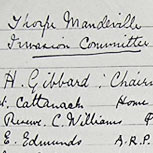 Thorpe Mandeville
Invasion Committee
H. Gibbard : Chair
W. Cattanach Home
C. Williams
E. Edmunds A.R.P.